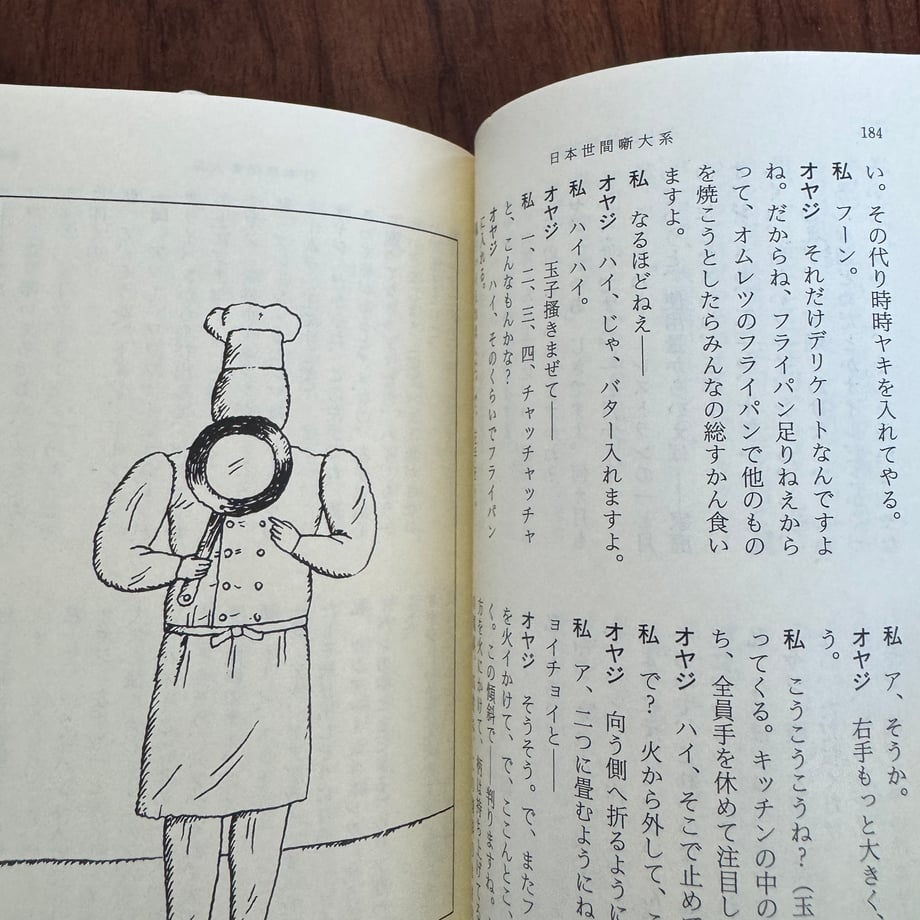 184
日本世間噺大系
い。その代り時時ヤキを入れてやる。
私　フーン。
オヤジ　それだけデリケートなんですよ
ね。だからね、フライパン足りねえから
って、オムレツのフライパンで他のもの
を焼こうとしたらみんなの総すかん食い
ますよ。
私　なるほどねえ――
オヤジ　ハイ、じゃ、バター入れますよ。
私　ハイハイ。
オヤジ　玉子掻きまぜて――
私　一、二、三、四、チャッチャッチャ
と、こんなもんかな？
オヤジ　ハイ、そのくらいでフライパン
に入れる。
私　ア、そうか。
オヤジ　右手もっと大きく、
う。
私　こうこうこうね？（玉
ってくる。キッチンの中の
ち、全員手を休めて注目し
オヤジ　ハイ、そこで止めて
私　で？　火から外して、
オヤジ　向う側へ折るように
私　ア、二つに畳むようにね
ョイチョイと――
オヤジ　そうそう。で、またフ
を火イかけて、で、ここんとこ、
く。この傾斜で――判りますね。
方を火にかけて、柄は持ち上げ